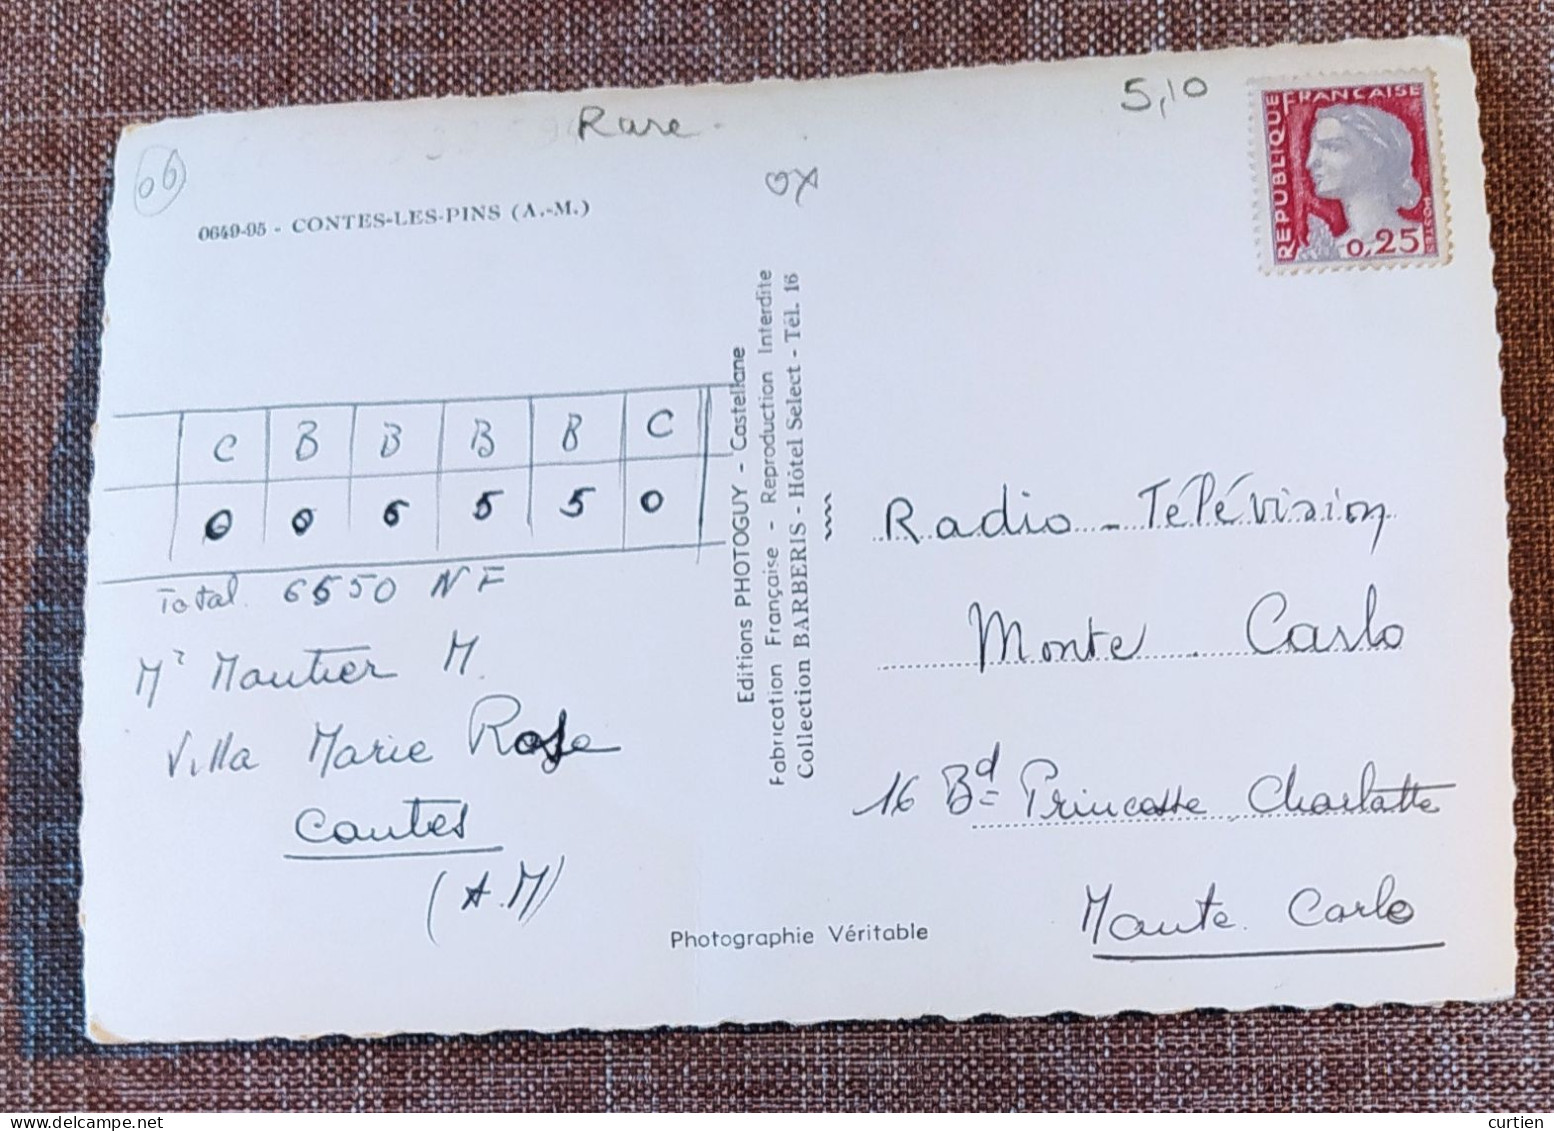 Rare
5,10
06
0649-95 - CONTES-LES-PINS (A.-M.)
REPUBLIQUE FRANÇAISE
POSTES
0,25
C B B B B C
0 0 6 5 5 0
Total 6550 NF
Mr Mautier M.
Villa Marie Rose
Contes
(A.M)
Editions PHOTOGUY - Castellane
Fabrication Française - Reproduction Interdite
Collection BARBERIS - Hôtel Select - Tél. 16
Radio-Télévision
Monte Carlo
16 Bd Princesse Charlotte
Monte Carlo
Photographie Véritable
curtien